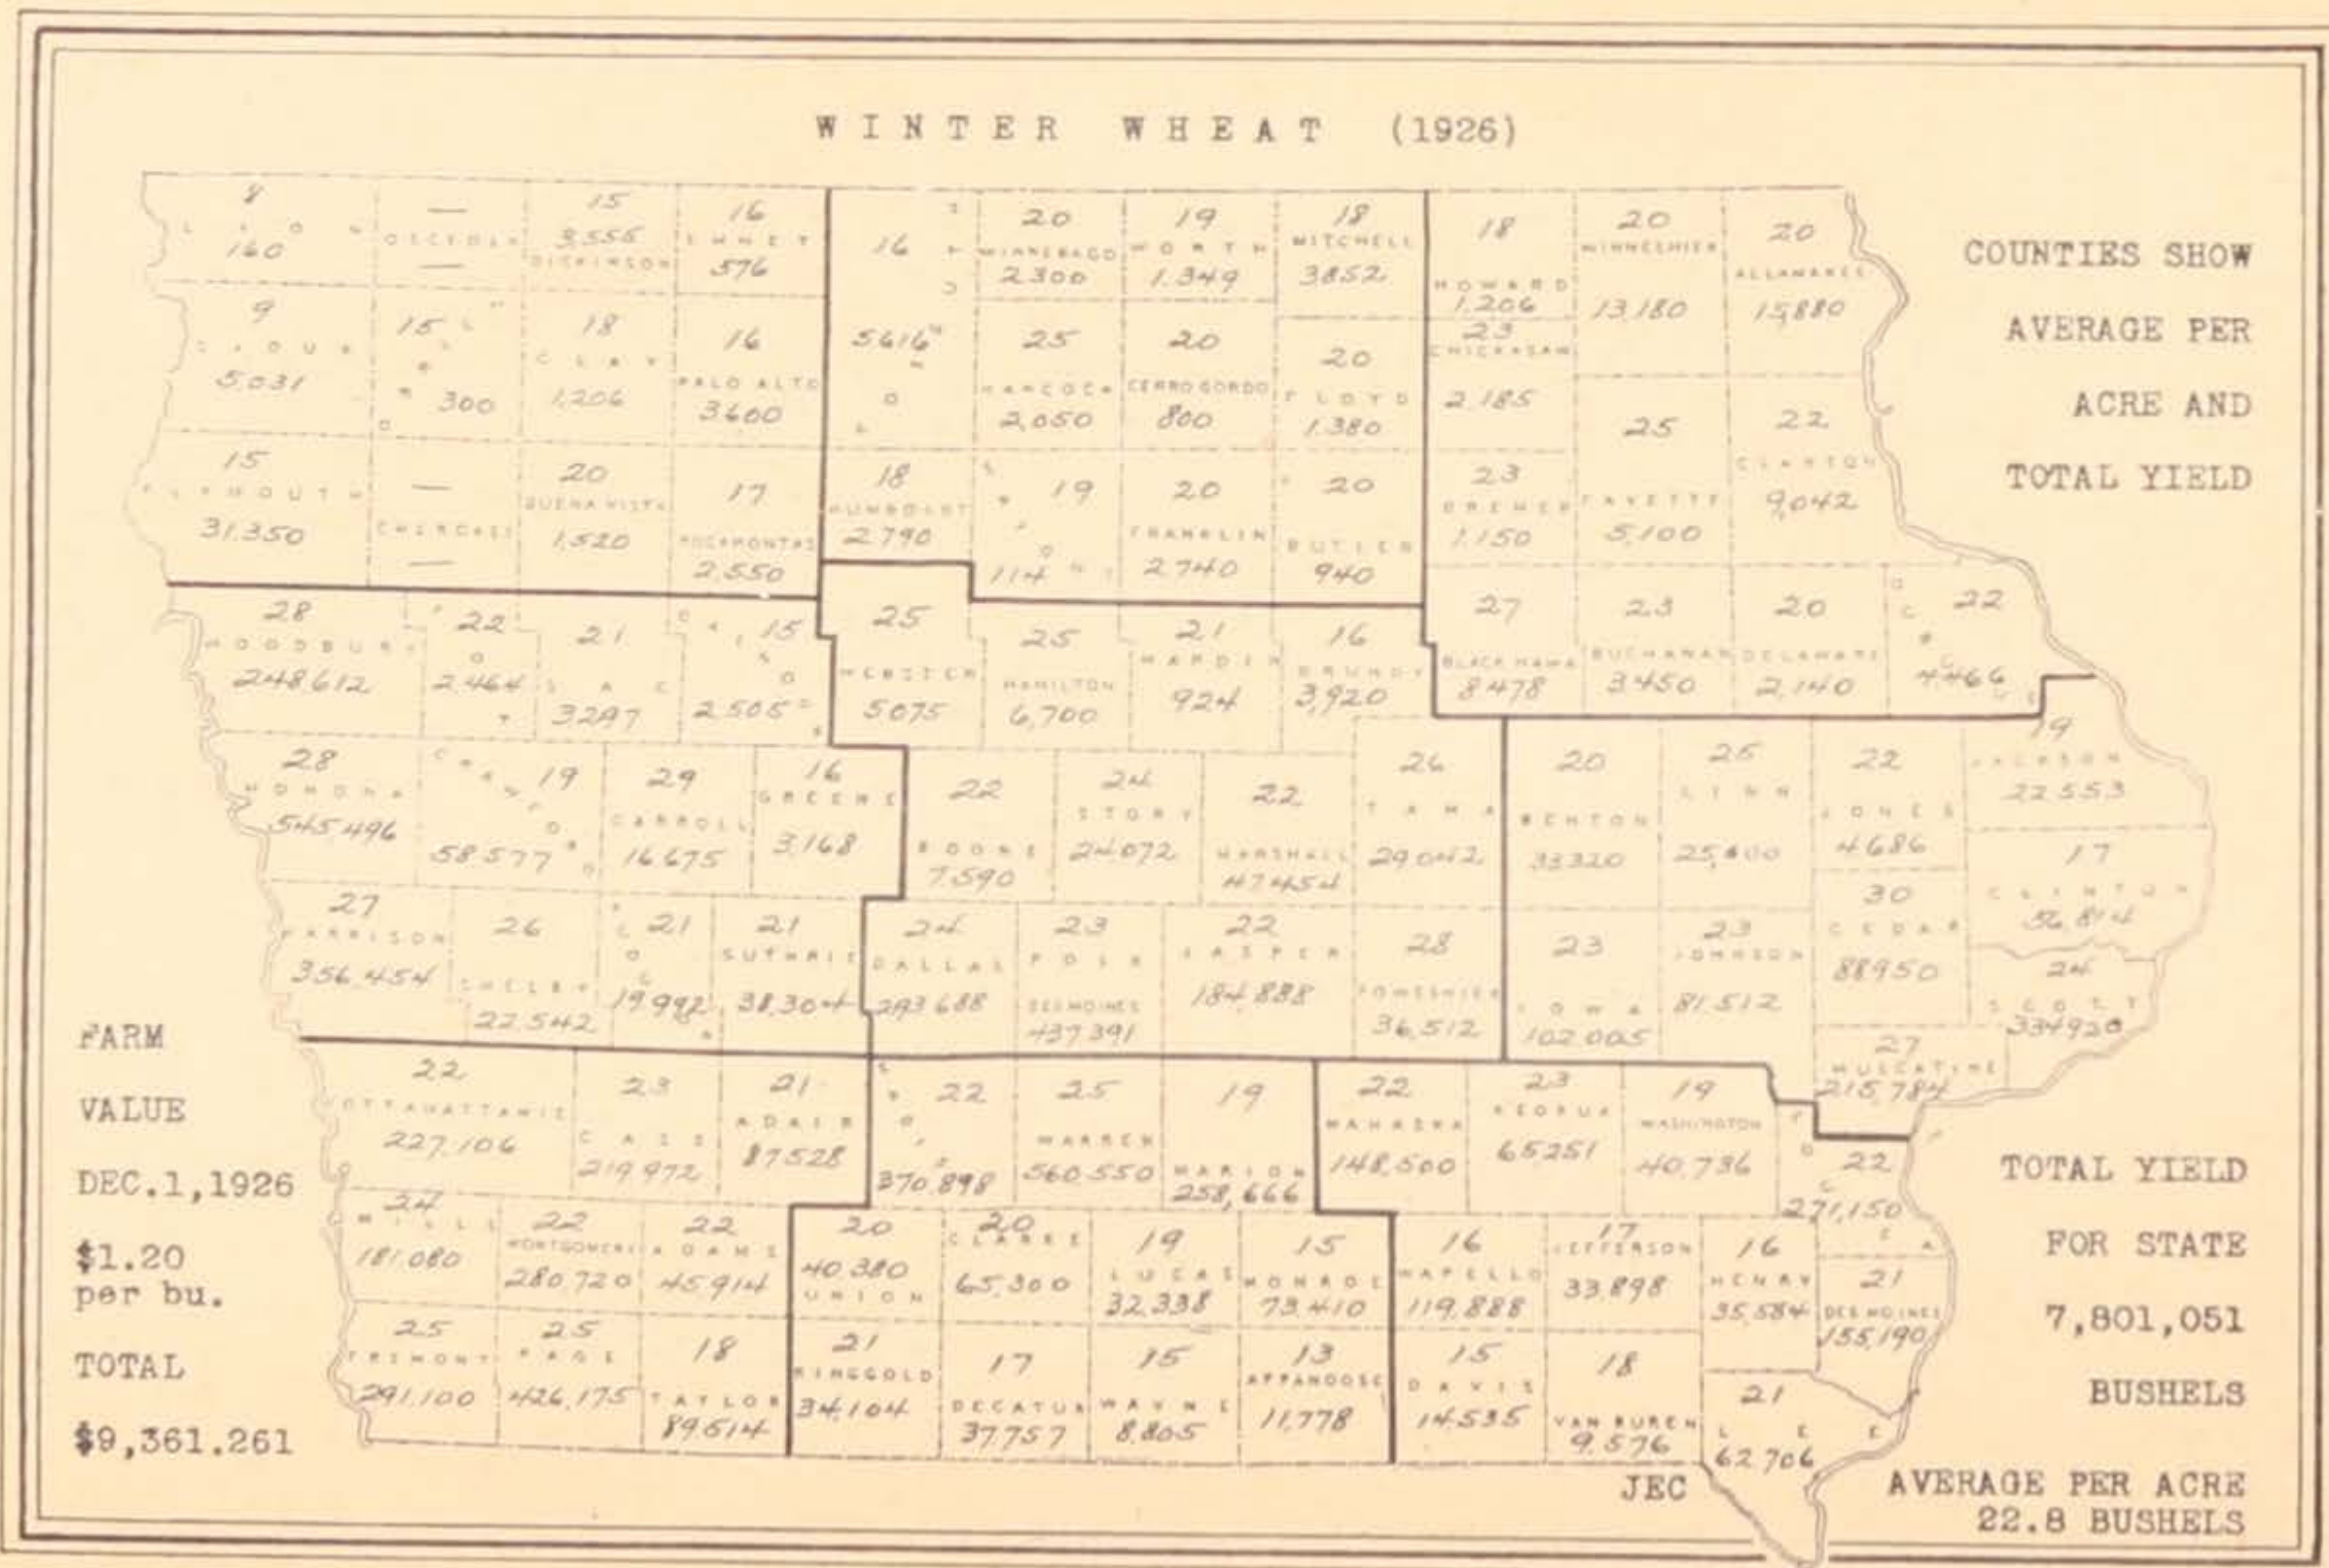 WINTER WHEAT (1926)
COUNTIES SHOW
AVERAGE PER
ACRE AND
TOTAL YIELD
8
LYON
160
—
OSCEOLA
—
15
3,555
DICKINSON
16
EMMET
576
16
KOSSUTH
5616
20
WINNEBAGO
2300
19
WORTH
1.349
18
MITCHELL
3852
18
HOWARD
1.206
20
WINNESHIEK
13.180
20
ALLAMAKEE
15,880
9
SIOUX
5,031
15
300
18
CLAY
1,206
16
PALO ALTO
3600
25
HANCOCK
2,050
20
CERRO GORDO
800
20
FLOYD
1.380
23
CHICKASAW
2.185
15
PLYMOUTH
31.350
—
CHEROKEE
—
20
BUENA VISTA
1,520
17
POCAHONTAS
2.550
18
HUMBOLDT
2790
19
114
20
FRANKLIN
2740
20
BUTLER
940
23
BREMER
1.150
25
FAYETTE
5,100
22
CLAYTON
9,042
28
WOODBURY
248612
22
2.464
21
SAC
15
2.505
25
WEBSTER
5075
25
HAMILTON
6,700
21
HARDIN
924
16
GRUNDY
3,920
27
BLACK HAWK
8478
23
BUCHANAN
3.450
20
DELAWARE
2,140
22
4,466
28
MONONA
545,496
CRAWFORD
19
58.577
29
CARROLL
16.675
16
GREENE
3,168
22
BOONE
7.590
24
STORY
24072
22
MARSHALL
47454
26
TAMA
29.042
20
BENTON
33320
25
LINN
22
JONES
4.686
19
JACKSON
22.553
17
CLINTON
56,814
27
HARRISON
356.454
26
SHELBY
22.542
21
19.992
21
GUTHRIE
38.304
24
DALLAS
293.688
23
POLK
DES MOINES
437391
22
JASPER
184.888
28
POWESHIEK
36,512
23
IOWA
102.005
23
JOHNSON
81.512
30
CEDAR
88950
24
SCOTT
334920
27
MUSCATINE
215,784
22
POTTAWATTAMIE
227,106
23
CASS
219,972
21
ADAIR
87528
22
370,898
25
WARREN
560.550
19
MARION
258,666
22
MAHASKA
148,500
23
KEOKUK
65251
19
WASHINGTON
40,736
22
271,150
24
MILLS
181.080
22
MONTGOMERY
280.720
22
ADAMS
45.914
20
40.380
UNION
20
CLARKE
65,300
19
LUCAS
32.338
15
MONROE
73.410
16
WAPELLO
119.888
17
JEFFERSON
33.898
16
HENRY
35,584
21
DES MOINES
155,190
25
FREMONT
291.100
25
PAGE
426,175
18
TAYLOR
89.514
21
RINGGOLD
34,104
17
DECATUR
37757
15
WAYNE
8.805
13
APPANOOSE
11,778
15
DAVIS
14.535
18
VAN BUREN
9.576
21
LEE
62706
FARM
VALUE
DEC.1,1926
$1.20
per bu.
TOTAL
$9,361.261
TOTAL YIELD
FOR STATE
7,801,051
BUSHELS
AVERAGE PER ACRE
22.8 BUSHELS
JEC